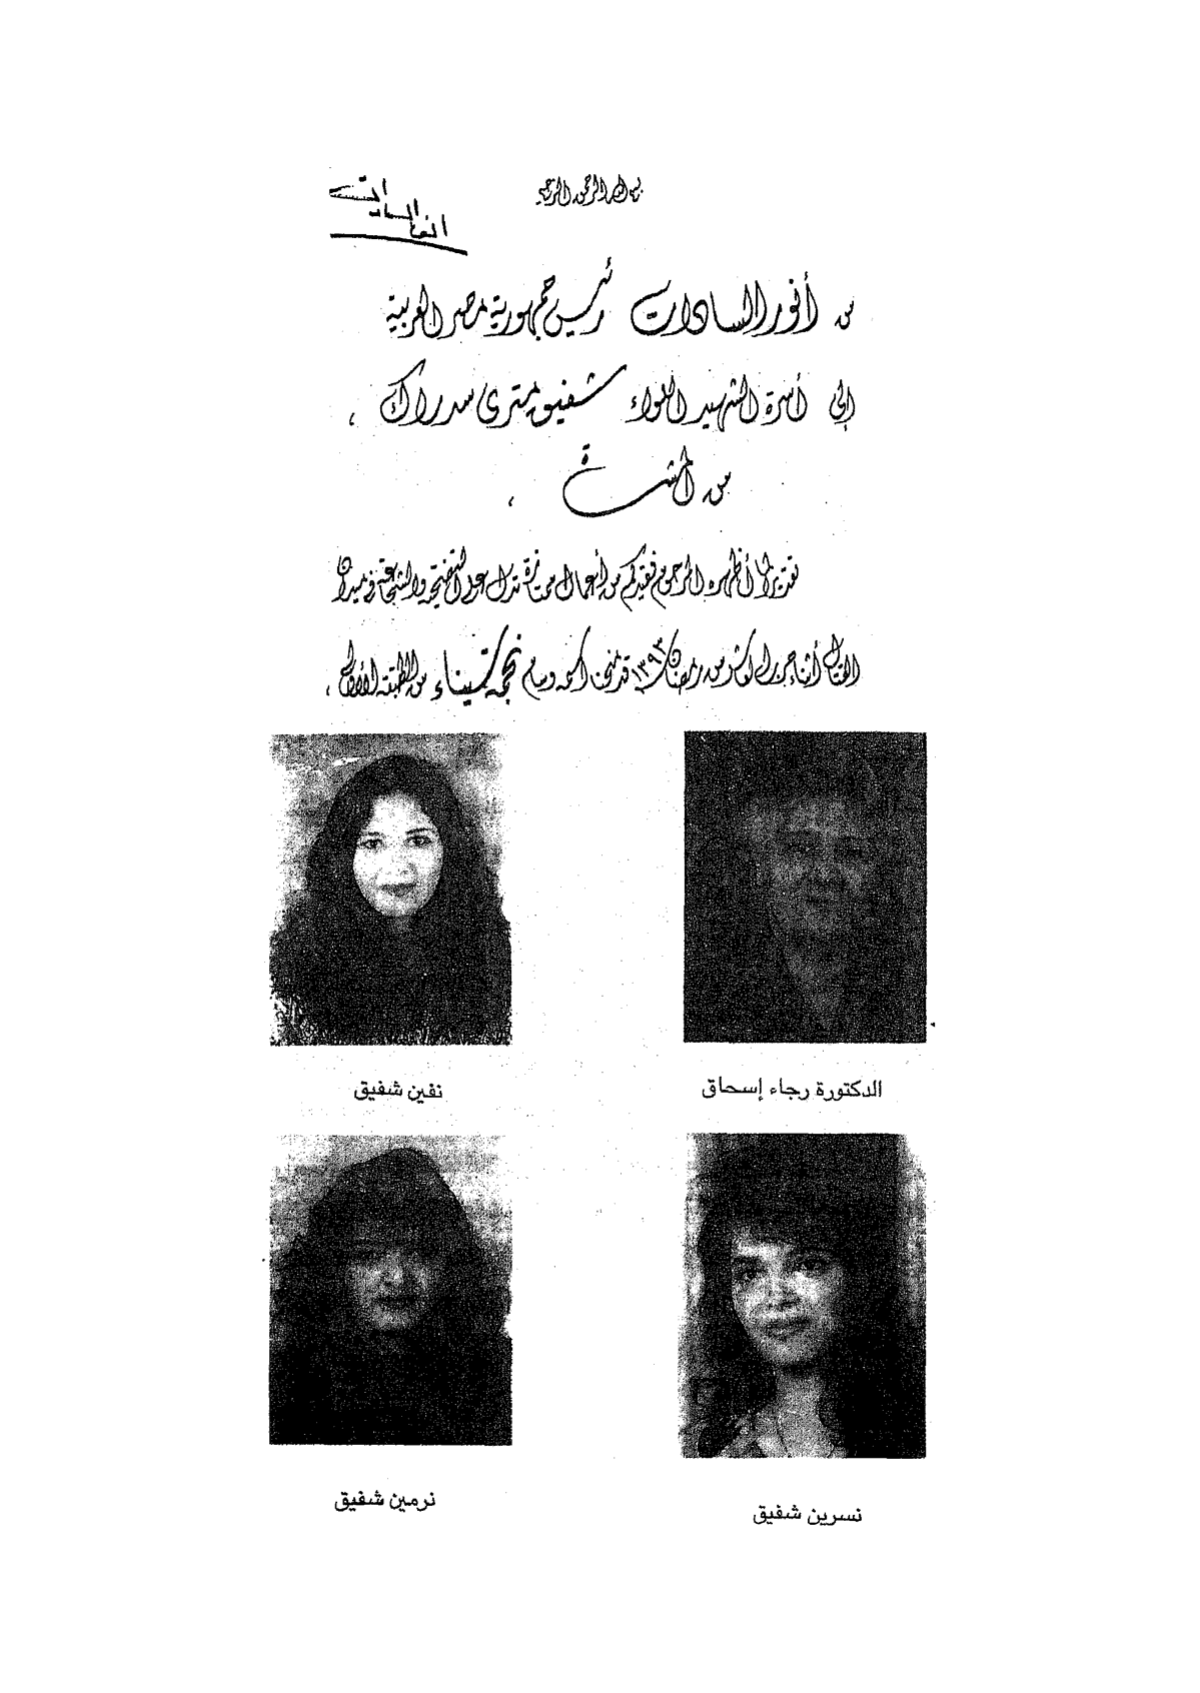 بسم الله الرحمن الرحيم
أنور السادات
من أنور السادات رئيس جمهورية مصر العربية
إلى أسرة الشهيد اللواء شفيق متري سدراك ،
من
تقديرا لما أظهره المرحوم فقيدكم من أعمال ممتازة تدل على التضحية والشجاعة في ميدان
القتال أثناء حرب العاشر من رمضان ١٣٩٣ قد منحنا اسمه وسام نجمة سيناء من الطبقة الأولى ،
نفين شفيق
الدكتورة رجاء إسحاق
نرمين شفيق
نسرين شفيق